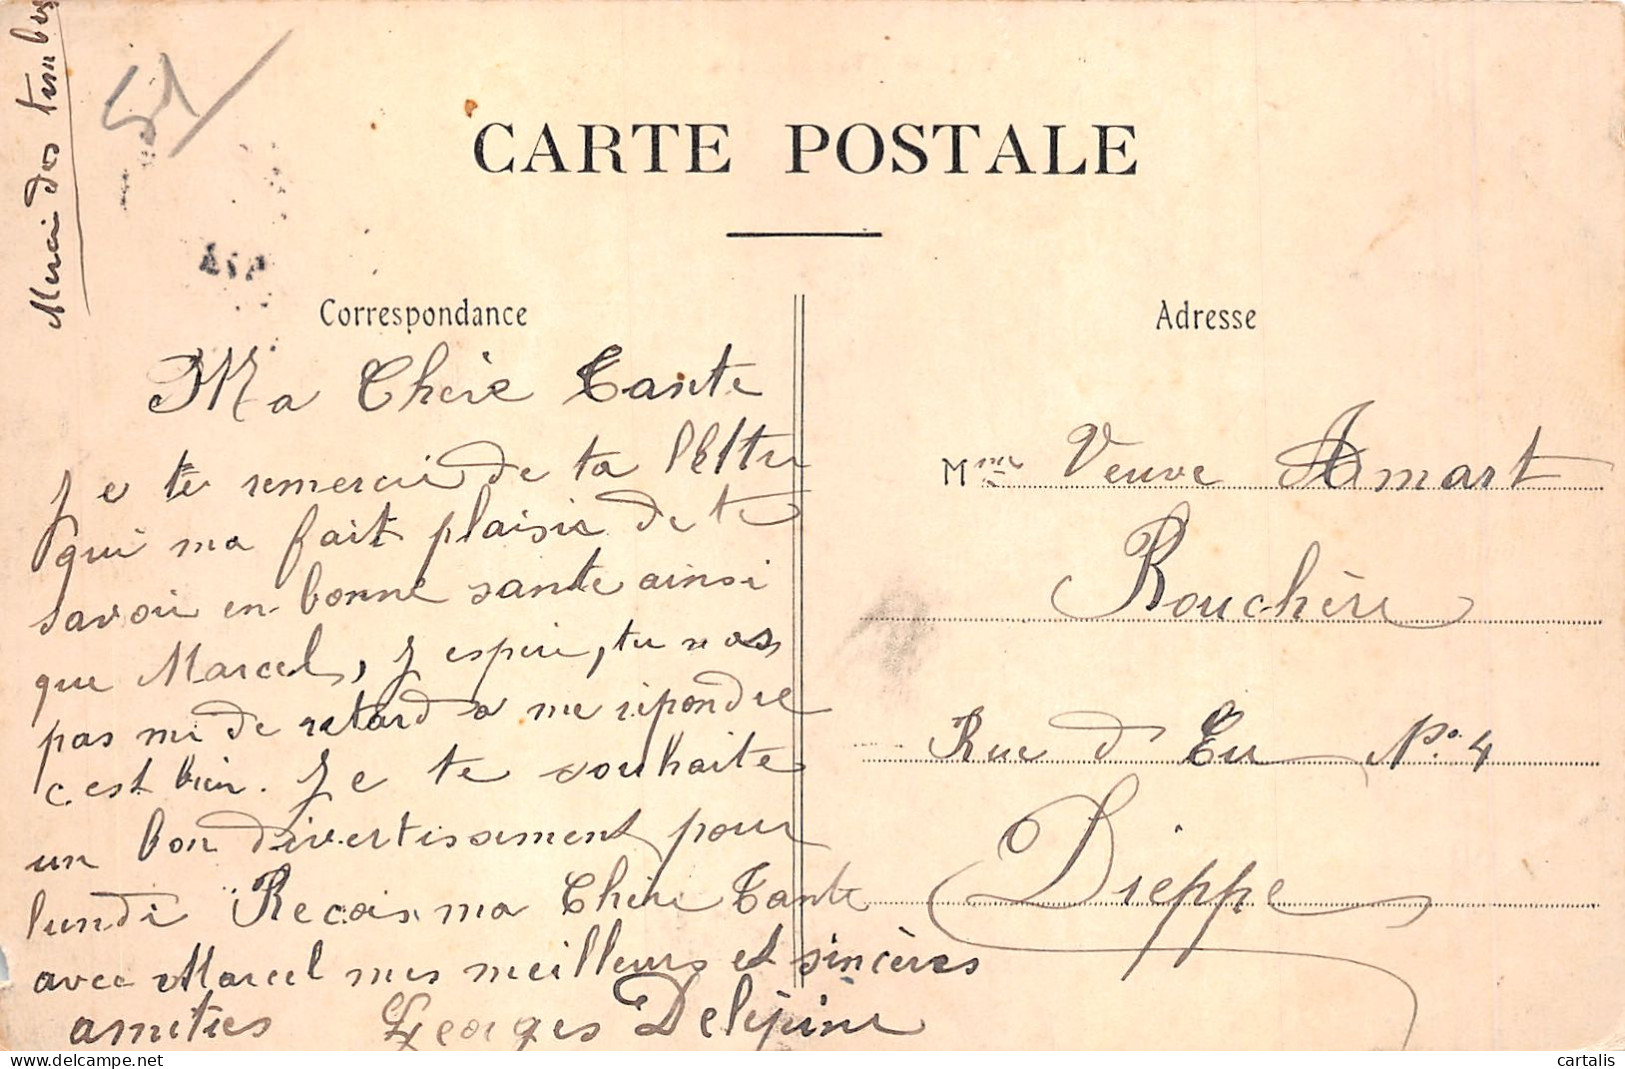 Merci des timbres
51
CARTE POSTALE
Correspondance
Ma Chère Tante
Je te remercie de ta lettre
qui ma fait plaisir de te
savoir en bonne sante ainsi
que Marcel, J espere, tu nas
pas mi de retard a me repondre
c. est bien. Je te souhaite
un bon divertissement pour
lundi Recois ma Chère Tante
avec Marcel mes meilleurs et sincères
amities Georges Delépine
Adresse
Mme Veuve Amart
Rouchère
Rue d Eu No 4
Dieppe
cartalis